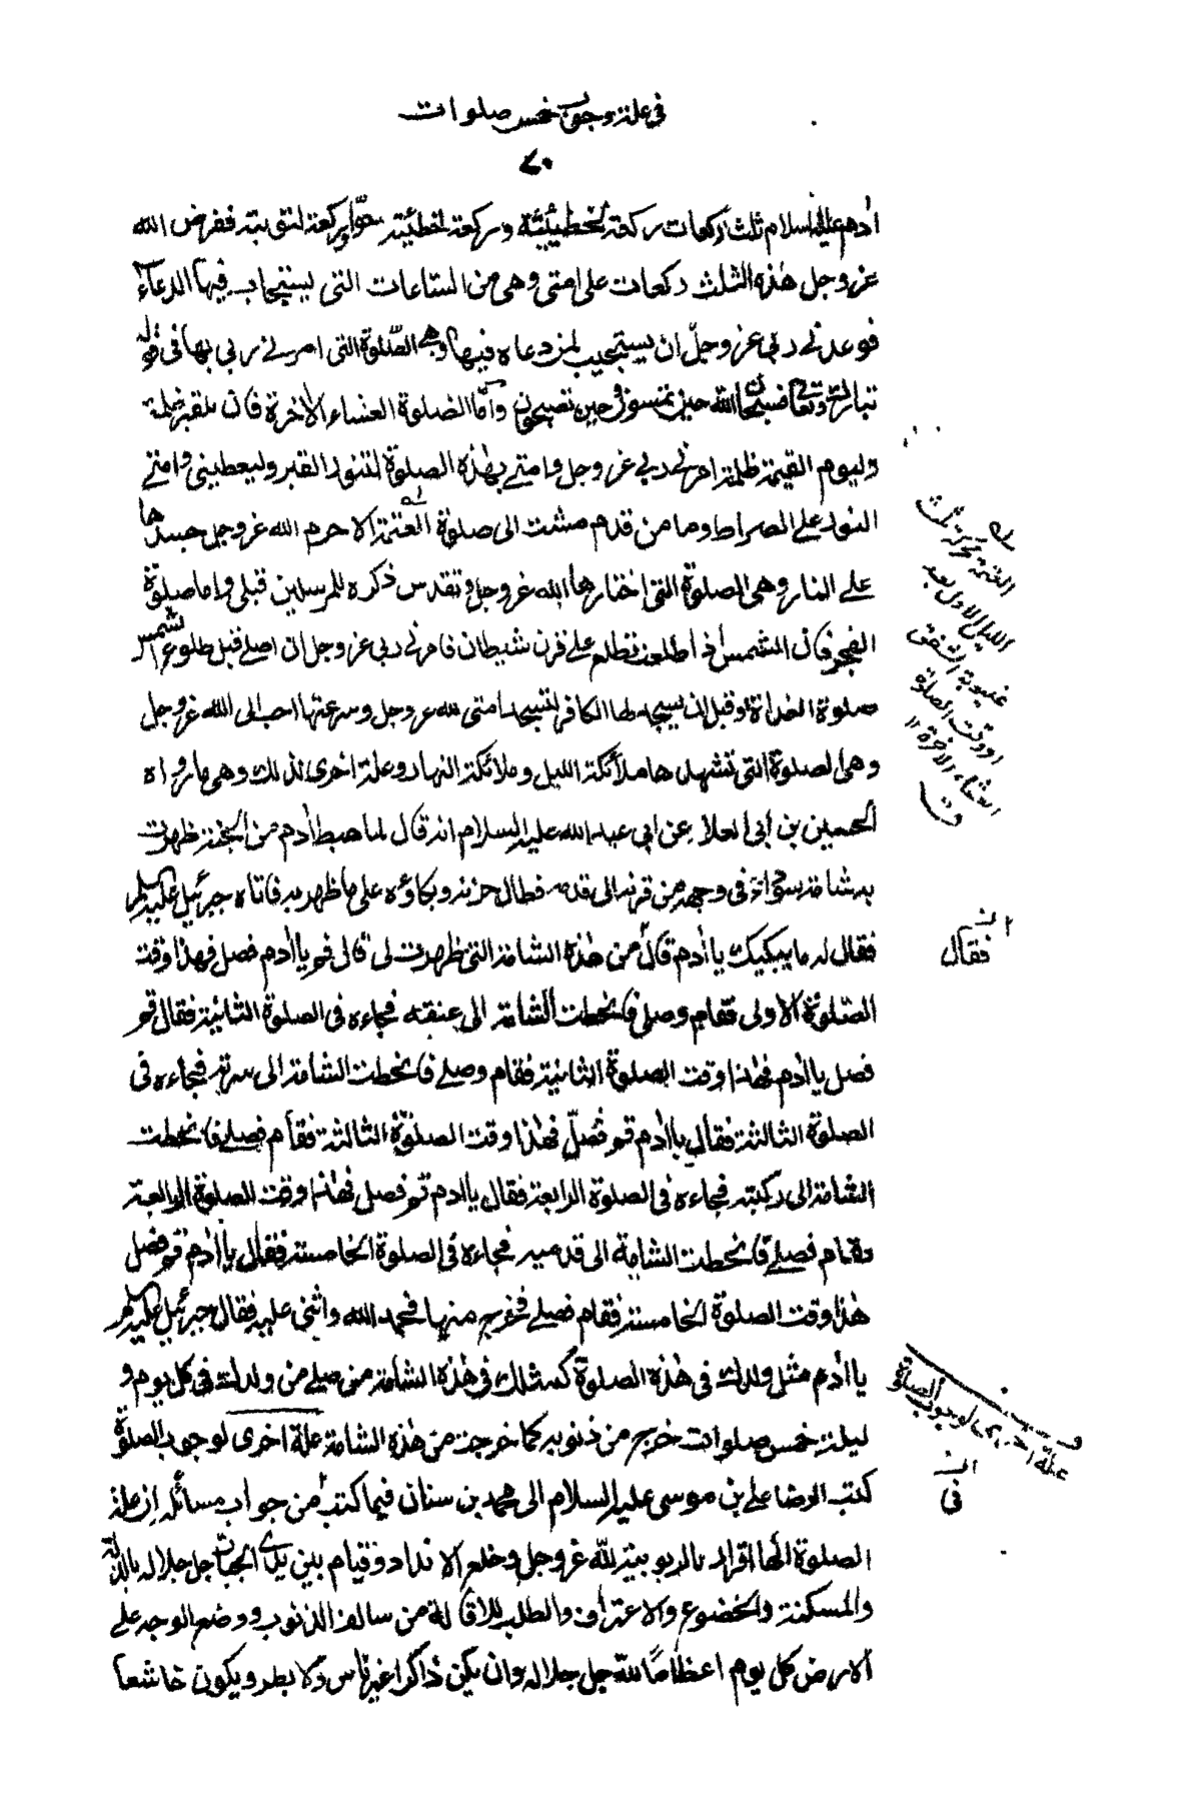 فى علة وجوب خمس صلوات
٧٠
ادم عليه السلام ثلث ركعات ركعة لخطيئته وركعة لخطيئة حوّا وركعة لتوبته ففرض الله
عز وجل هذه الثلث ركعات على امتى وهى من الساعات التى يستجاب فيها الدعاء
فوعدنى ربى عز وجلّ ان يستجيب لمن دعاه فيها وهى الصّلوة التى امرنى ربى بها فى قوله
تبارك وتعالى فسبحان الله حين تمسون وحين تصبحون وامّا الصلوة العشاء الاخرة فان للقبر ظلمة
وليوم القيمة ظلمة امرنى ربى عز وجل وامتى بهذه الصلوة لتنور القبر وليعطينى وامتى
النور على الصراط وما من قدم مشت الى صلوة العتمة الا حرم الله عز وجل جسدها
على النار وهى الصلوة التى اختارها الله عز وجل وتقدس ذكره للمرسلين قبلى واما صلوة
الفجر فان الشمس اذا طلعت تطلع على قرن شيطان فامرنى ربى عز وجل ان اصلى قبل طلوع الشمس
صلوة الغداة وقبل ان يسجد لها الكافر لتسجد امتى لله عز وجل وسرعتها احب الى الله عز وجل
وهى الصلوة التى تشهدها ملائكة الليل وملائكة النهار وعلة اخرى لذلك وهى ما رواه
الحسين بن ابى العلاء عن ابى عبد الله عليه السلام انه قال لما هبط ادم من الجنة ظهرت
به شامة سوداء فى وجهه من قرنه الى قدمه فطال حزنه وبكاؤه على ما ظهر به فاتاه جبرئيل عليه السلم
فقال له ما يبكيك يا ادم قال من هذه الشامة التى ظهرت لى قال قم يا ادم فصل فهذا وقت
الصّلوة الاولى فقام وصلى فانحطت الشامة الى عنقه فجاءه فى الصلوة الثانية فقال قم
فصل يا ادم فهذا وقت الصلوة الثانية فقام وصلى فانحطت الشامة الى سرته فجاءه فى
الصلوة الثالثة فقال يا ادم قم فصلّ فهذا وقت الصلوة الثالثة فقام فصلى فانحطت
الشامة الى ركبتيه فجاءه فى الصلوة الرابعة فقال يا ادم قم فصل فهذا وقت الصلوة الرابعة
فقام فصلى فانحطت الشامة الى قدميه فجاءه فى الصلوة الخامسة فقال يا ادم قم فصل
فهذا وقت الصلوة الخامسة فقام فصلى فخرج منها فحمد الله واثنى عليه فقال جبرئيل عليه السلم
يا ادم مثل ولدك فى هذه الصلوة كمثلك فى هذه الشامة من صلى من ولدك فى كل يوم و
ليلة خمس صلوات خرج من ذنوبه كما خرجت من هذه الشامة علة اخرى لوجوب الصلوة
كتب الرضا على بن موسى عليه السلام الى محمد بن سنان فيما كتب من جواب مسائله ان علة
الصلوة انها اقرار بالربوبية لله عز وجل وخلع الانداد وقيام بين يدى الجبار جل جلاله بالذلة
والمسكنة والخضوع والاعتراف والطلب للاقالة من سالف الذنوب ووضع الوجه على
الارض كل يوم اعظاما لله جل جلاله وان يكون ذاكرا غير ناس ولا بطر ويكون خاشعا
العتمة محركة ثلث
الليل الاول بعد
غيبوبة الشفق
او وقت الصلوة
العشاء الاخرة
ق
فقال
علة اخرى لوجوب الصلوة
فى